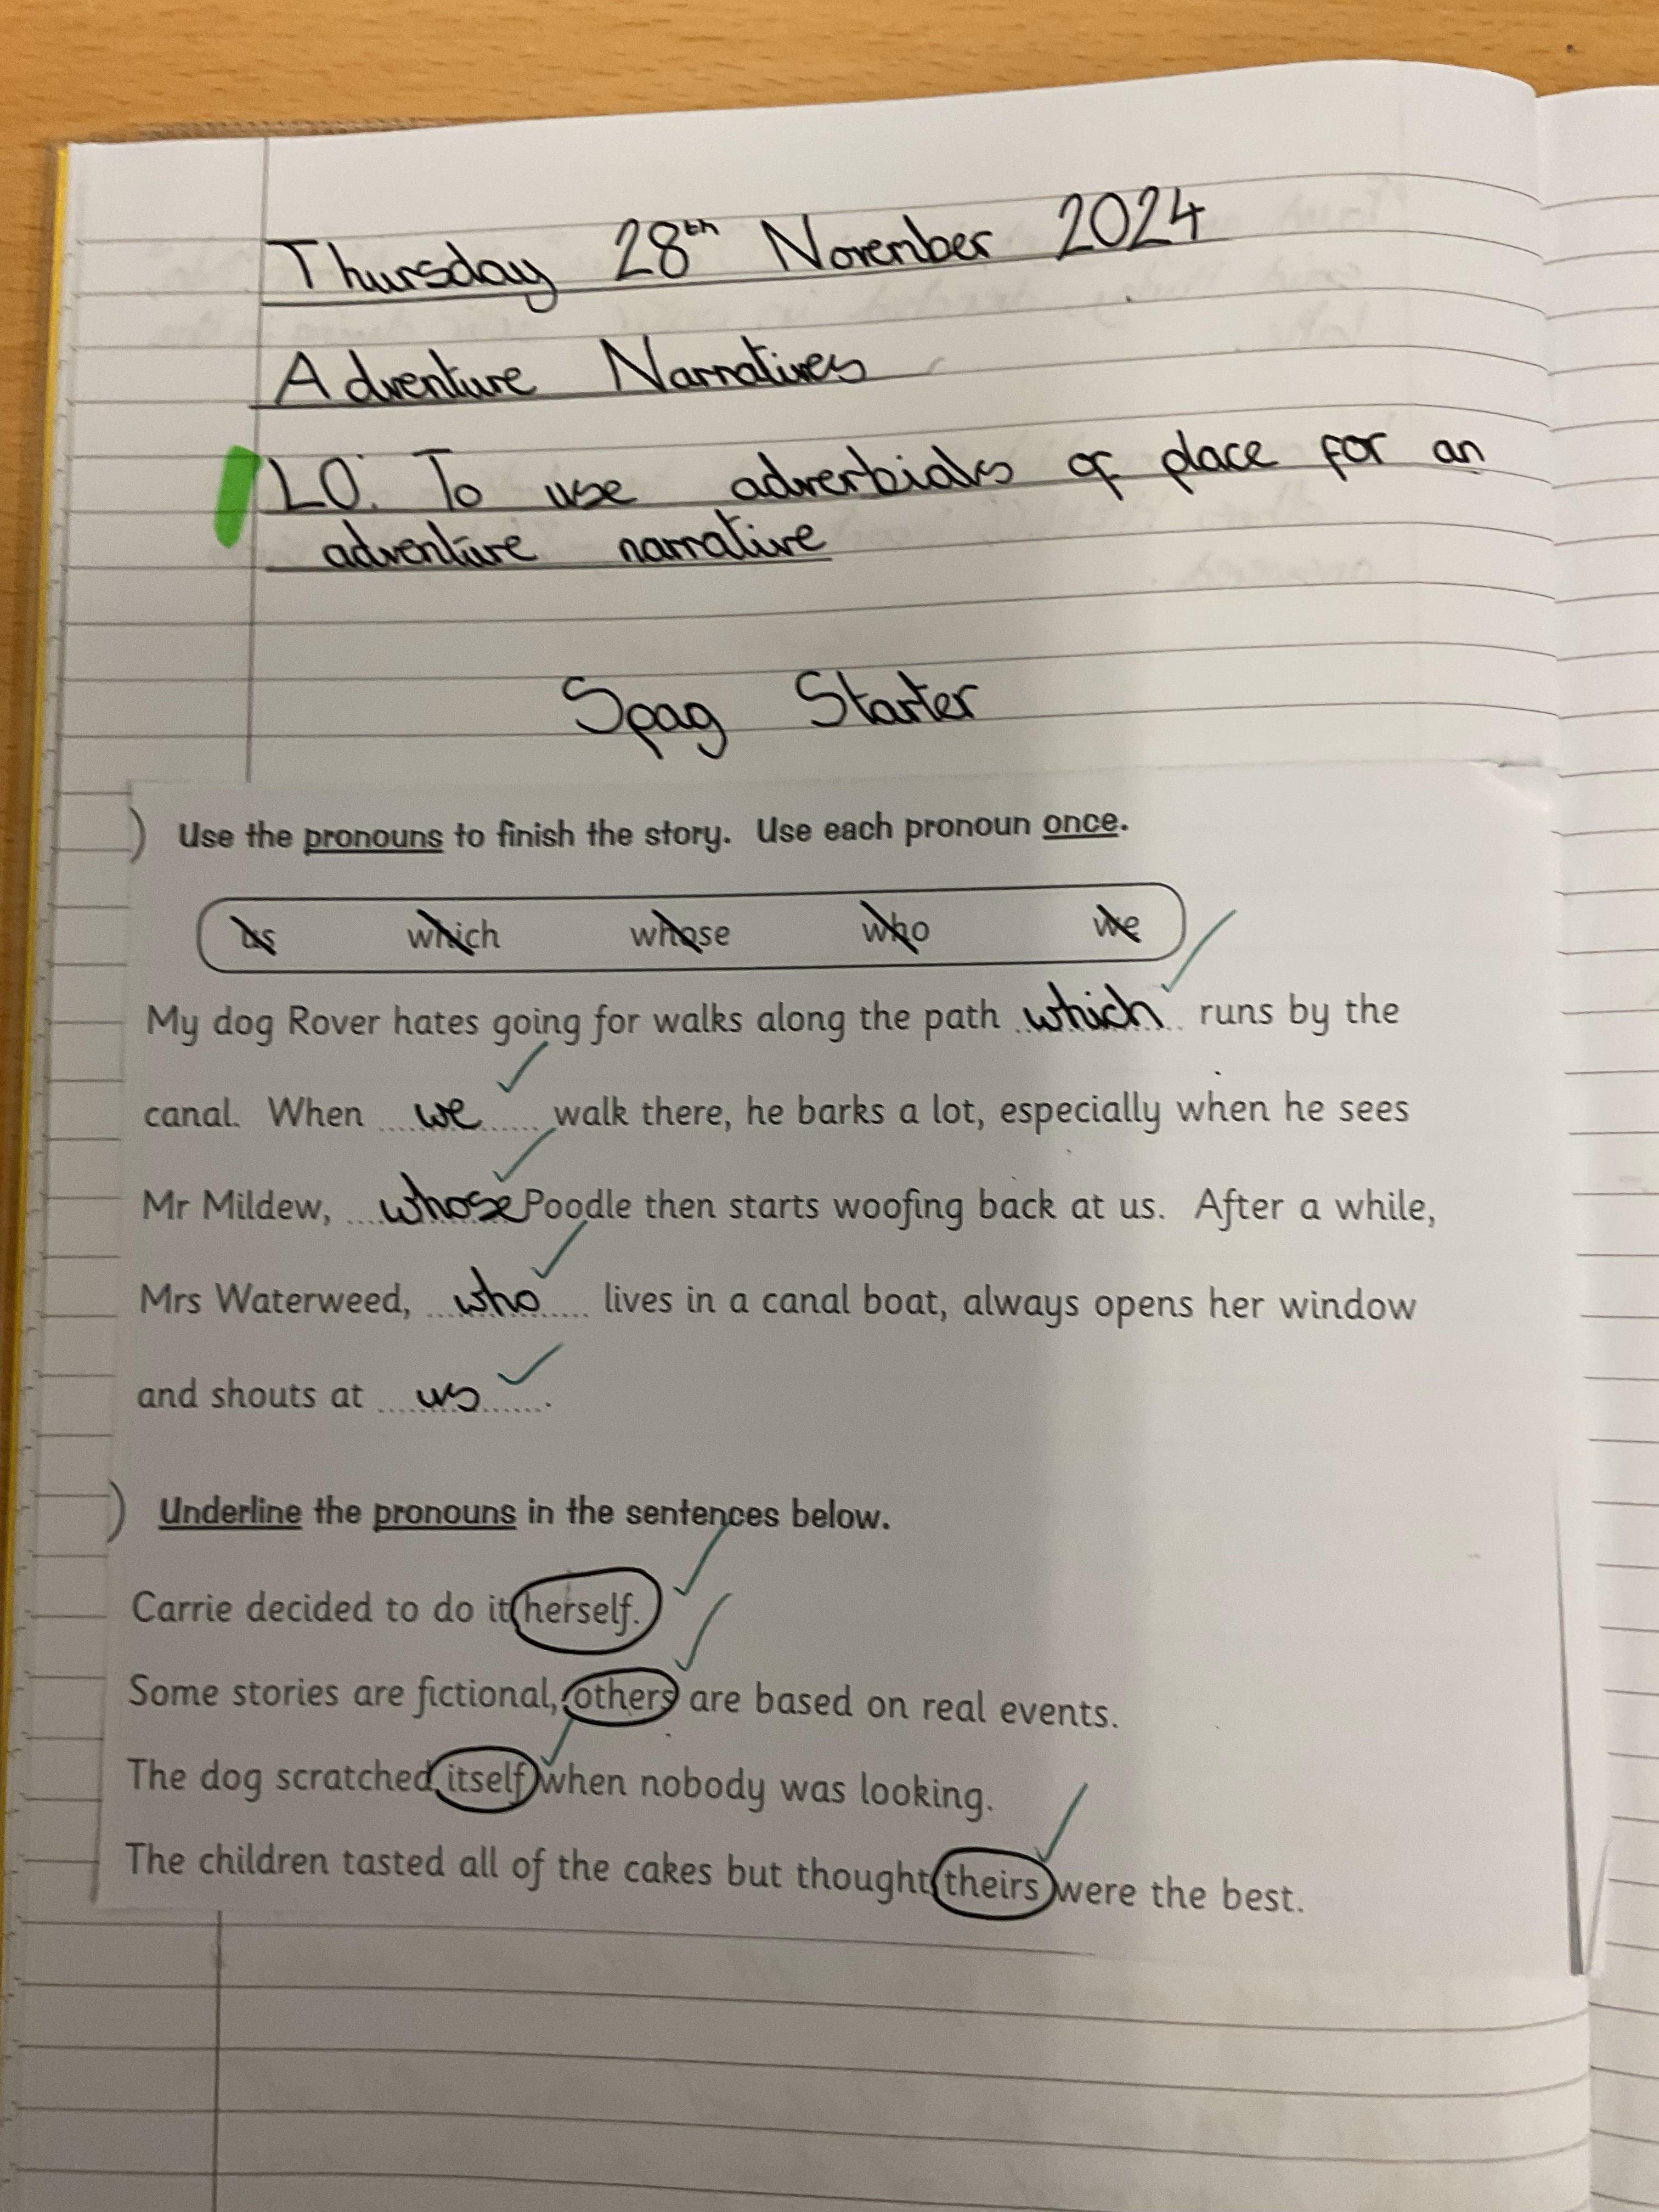 Thursday 28th November 2024
Adventure Narratives
LO: To use adverbials of place for an
adventure narrative
Spag Starter
) Use the pronouns to finish the story. Use each pronoun once.
us which whose who we
My dog Rover hates going for walks along the path which runs by the
canal. When we walk there, he barks a lot, especially when he sees
Mr Mildew, whose Poodle then starts woofing back at us. After a while,
Mrs Waterweed, who lives in a canal boat, always opens her window
and shouts at us.
) Underline the pronouns in the sentences below.
Carrie decided to do it herself.
Some stories are fictional, others are based on real events.
The dog scratched itself when nobody was looking.
The children tasted all of the cakes but thought theirs were the best.